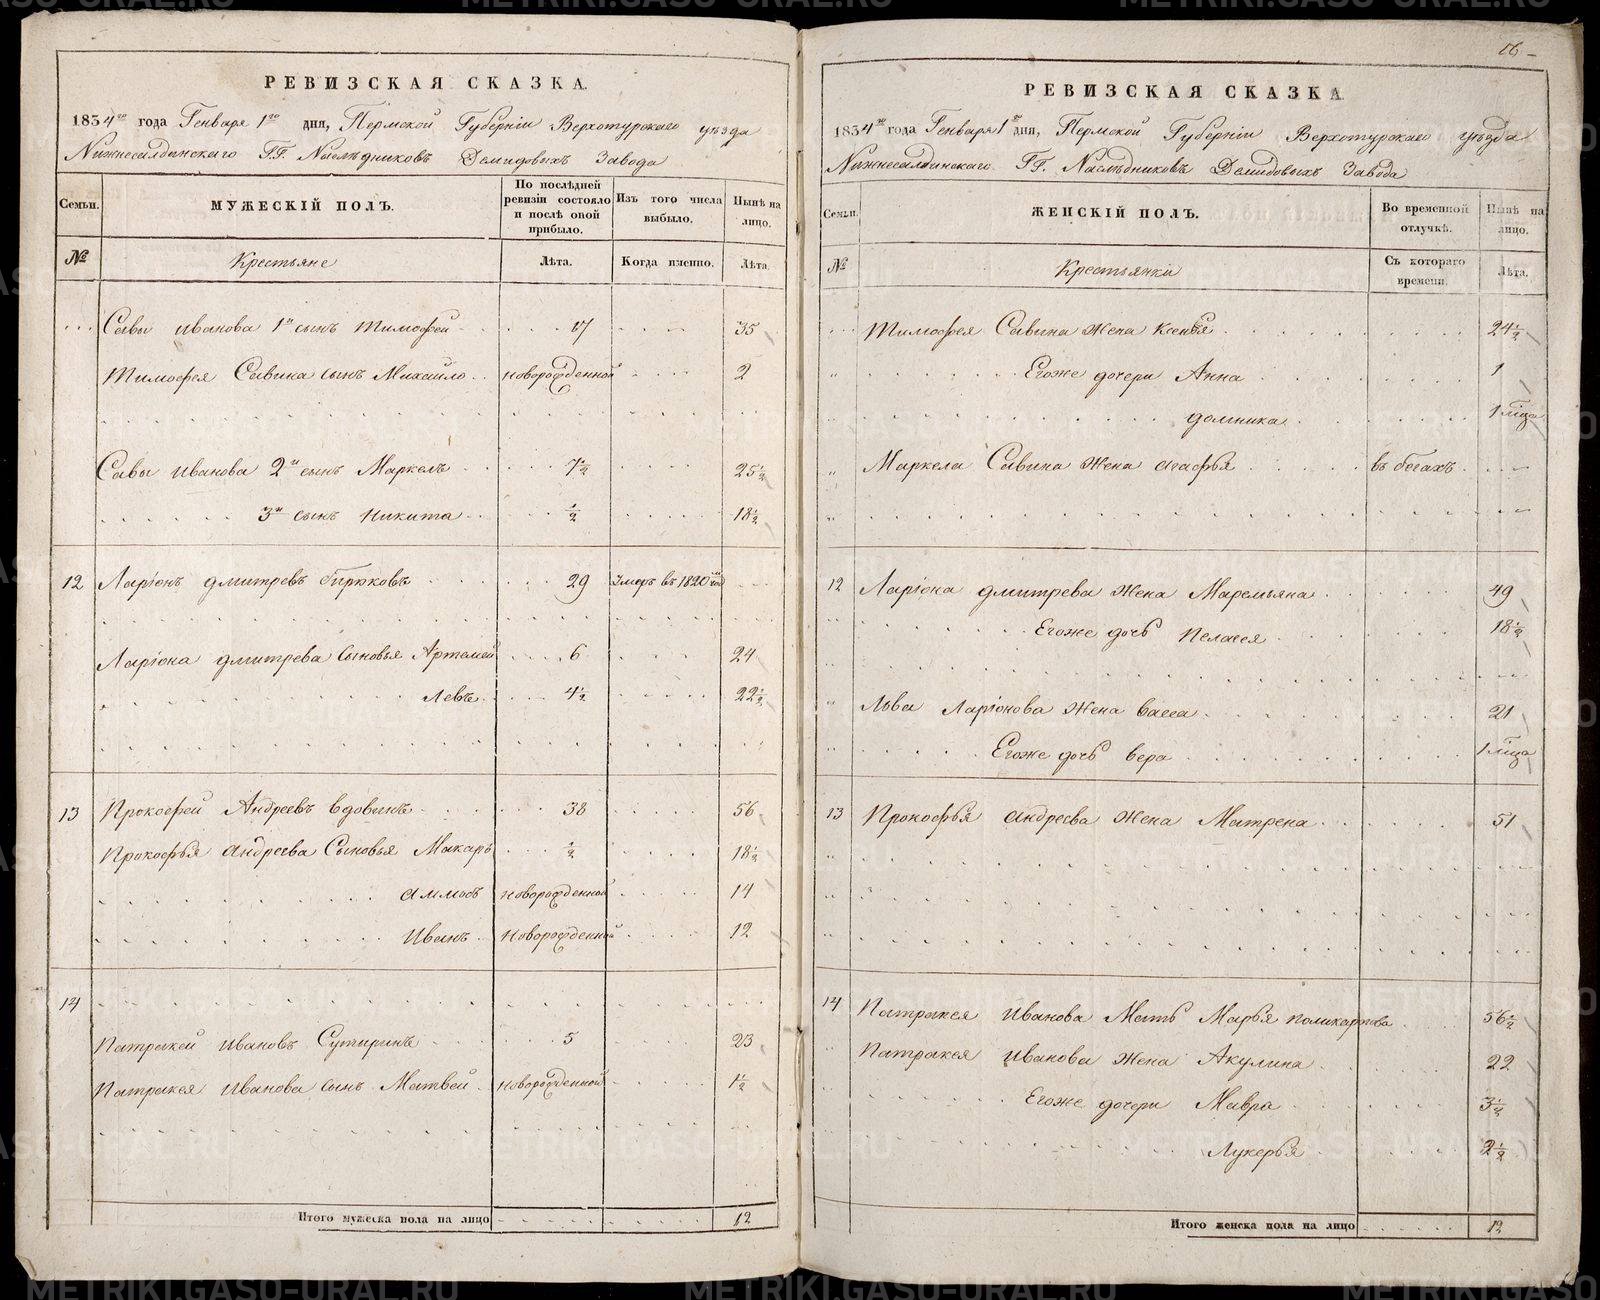 РЕВИЗСКАЯ СКАЗКА.
1834го года Генваря 1го дня, Пермской Губернiи Верхотурскаго уѣзда
Нижнесалдинскаго Г.Г. Наслѣдниковъ Демидовыхъ Завода
Семьи. МУЖЕСКIЙ ПОЛЪ. По послѣдней ревизiи состояло и послѣ оной прибыло. Изъ того числа выбыло. Нынѣ на лицо.
№ Крестьяне Лѣта. Когда именно. Лѣта.
Савы Иванова 1й сынъ Тимофей 17 35
Тимофея Савина сынъ Михайло новорожденной 2
Савы Иванова 2й сынъ Маркелъ 7½ 25½
3й сынъ Никита ½ 18½
12 Ларiонъ Дмитревъ Бирюковъ 29 Умеръ въ 1820м
Ларiона Дмитрева Сыновья Артемей 6 24
Левъ 4½ 22½
13 Прокофей Андреевъ Вдовинъ 38 56
Прокофья Андреева Сыновья Макаръ ½ 18½
Аммосъ Новорожденной 14
Иванъ Новорожденной 12
14
Патракей Ивановъ 5 23
Патракея Иванова сынъ Матвей новорожденной 1½
Итого мужеска пола на лицо 12
16
РЕВИЗСКАЯ СКАЗКА
1834го года Генваря 1го дня, Пермской Губернiи Верхотурскаго уѣзда
Нижнесалдинскаго Г.Г. Наслѣдниковъ Демидовыхъ Завода
Семьи. ЖЕНСКIЙ ПОЛЪ. Во временной отлучкѣ. Нынѣ на лицо.
№ Крестьянки Съ котораго времени. Лѣта.
Тимофея Савина Жена Ксенья 24½
Егоже дочери Анна 1
Домника 1 мѣсца
Маркела Савина Жена Агафья въ бегахъ
12 Ларiона Дмитрева Жена Маремьяна 49
Егоже дочь Пелагея 18½
Льва Ларiонова Жена Васса 21
Егоже дочь Вера 1 мѣсца
13 Прокофья Андреева Жена Матрена 51
14 Патракея Иванова Мать Марья Поликарпова 56½
Патракея Иванова Жена Акулина 22
Егоже дочери Мавра 3½
Лукерья 2½
Итого женска пола на лицо 12
METRIKI.GASO-URAL.RU